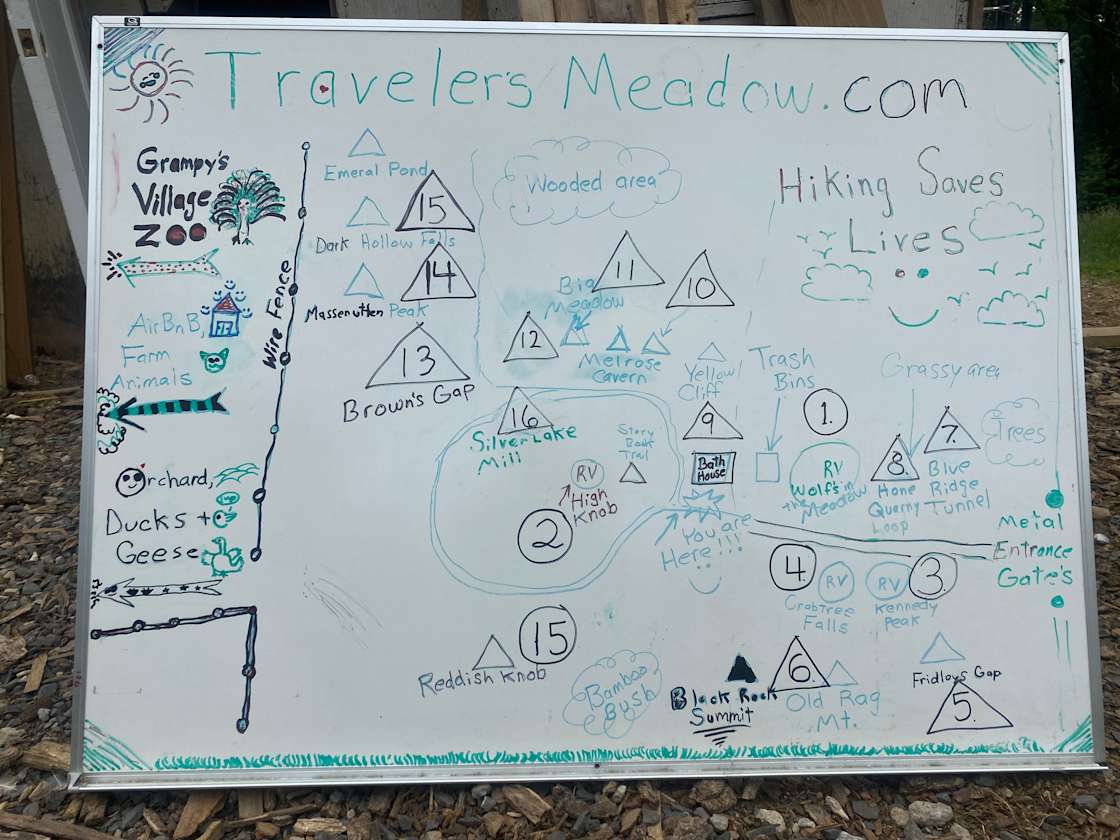 Travelers Meadow.com
Grampy's
Village
ZOO
AirBnB,
Farm
Animals
Orchard,
Ducks +
Geese
Wire Fence
Emeral Pond
15
Dark Hollow Falls
14
Massenutten Peak
13
Brown's Gap
Wooded area
11
10
Big
Meadow
12
Melrose
Cavern
Hiking Saves
Lives
Yellow
Cliff
9
Bath
House
Trash
Bins
1.
RV
Wolf's in
the Meadow
Grassy area
8.
Hone
Quarry
Loop
7.
Blue
Ridge
Tunnel
Trees
16
Silver Lake
Mill
Story
Book
Trail
RV
High
Knob
2
You are
Here!!!
Metal
Entrance
Gate's
4.
RV
Crabtree
Falls
RV
3.
Kennedy
Peak
15
Reddish Knob
Bamboo
Bush
Black Rock
Summit
6.
Old Rag
Mt.
Fridleys Gap
5.